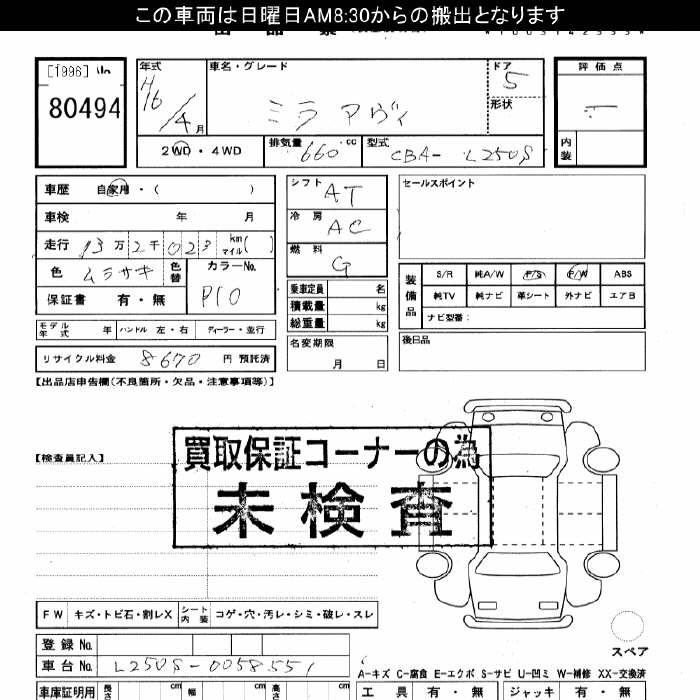 この車両は日曜日AM8:30からの搬出となります
[1996]
80494
年式 車名・グレード ドア 評価点
H16/4月 ミラ アヴィ 5
形状
2WD・4WD 排気量 660 cc 型式 CBA-L250S 内装
車歴 自家用・( )
車検 年 月
走行 13万2千023 km マイル( )
色 ムラサキ 色替 カラーNo. P10
保証書 有・無
モデル年式 年 ハンドル 左・右 ディーラー・並行
リサイクル料金 8670 円 預託済
シフト AT
冷房 AC
燃料 G
乗車定員 名
積載量 kg
総重量 kg
名変期限
月 日
セールスポイント
装備品 S/R 純A/W P/S P/W ABS
純TV 純ナビ 革シート 外ナビ エアB
ナビ型番:
後日品
【出品店申告欄(不良箇所・欠品・注意事項等)】
【検査員記入】
買取保証コーナーの為
未検査
FW キズ・トビ石・割レX シート内装 コゲ・穴・汚レ・シミ・破レ・スレ
スペア
登録No.
車台No. L250S-0058551
A-キズ C-腐食 E-エクボ S-サビ U-凹ミ W-補修 XX-交換済
車庫証明用 長さ cm 幅 cm 高さ cm 工具 有・無 ジャッキ 有・無